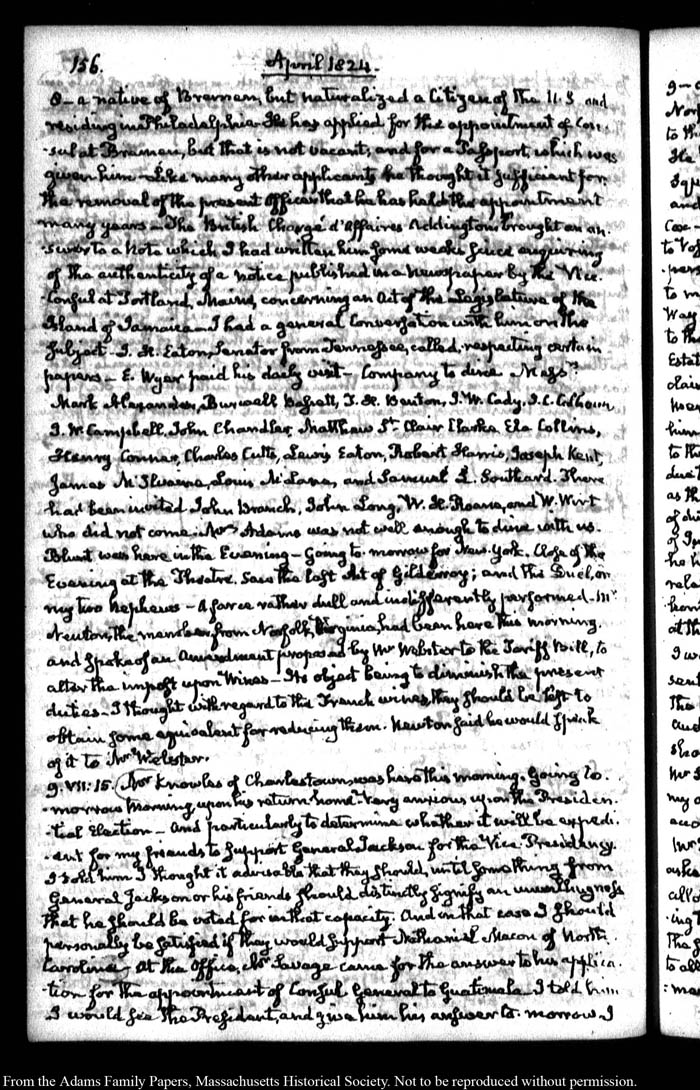 156. April 1824.
8 — a native of Bremen, but naturalized a Citizen of the U.S. and
residing in Philadelphia. He has applied for the appointment of Con-
-sul at Bremen, but that is not vacant; and for a Passport, which was
given him — Like many other applicants he thought it sufficient for
the removal of the present Officer that he has held the appointment
many years — The British Chargé d'Affaires Addington brought an an-
-swer to a Note which I had written him some weeks since enquiring
of the authenticity of a notice published in a Newspaper by the Vice-
-Consul at Portland, Maine, concerning an Act of the Legislature of the
Island of Jamaica — I had a general Conversation with him on the
subject. J. H. Eaton, Senator from Tennessee, called, respecting certain
papers — E. Wyer paid his daily visit — Company to dine Messrs
Mark Alexander, Burwell Bassett, T. H. Benton, J. W. Cady, J. C. Calhoun
J. W. Campbell, John Chandler, Matthew St. Clair Clarke, Ela Collins,
Henry Conner, Charles Cutts, Lewis Eaton, Robert Harris, Joseph Kent,
James McIlvaine, Louis McLane, and Samuel L. Southard. There
had been invited John Branch, John Long, W. H. Roane, and W. Wirt
who did not come. Mrs Adams was not well enough to dine with us.
Blunt was here in the Evening — going to-morrow for New-York. Close of the
Evening at the Theatre. Saw the last Act of Gilderoy; and the Duel, or
my two Nephews — A farce rather dull and indifferently performed — Mr
Newton, the member from Norfolk, Virginia, had been here this morning
and spoke of an Amendment proposed by Mr Webster to the Tariff Bill, to
alter the impost upon Wines — Its object being to diminish the present
duties — I thought with regard to the French wines, they should be left to
obtain some equivalent for reducing them. Newton said he would speak
of it to Mr Webster.
9. VII. 15. Mr Knowles of Charlestown, was here this morning. Going to-
-morrow Morning upon his return home. Very anxious upon the Presiden-
-tial Election — And particularly to determine whether it will be expedi-
-ent for my friends to support General Jackson for the Vice-Presidency.
I told him I thought it advisable that they should, until something from
General Jackson or his friends should distinctly signify an unwillingness
that he should be voted for in that capacity. And in that case I should
personally be satisfied if they would support Nathaniel Macon of North
Carolina. At the Office, Mr Savage came for the answer to his applica-
-tion for the appointment of Consul General to Guatemala. I told him
I would see the President, and give him his answer to-morrow. I
From the Adams Family Papers, Massachusetts Historical Society. Not to be reproduced without permission.